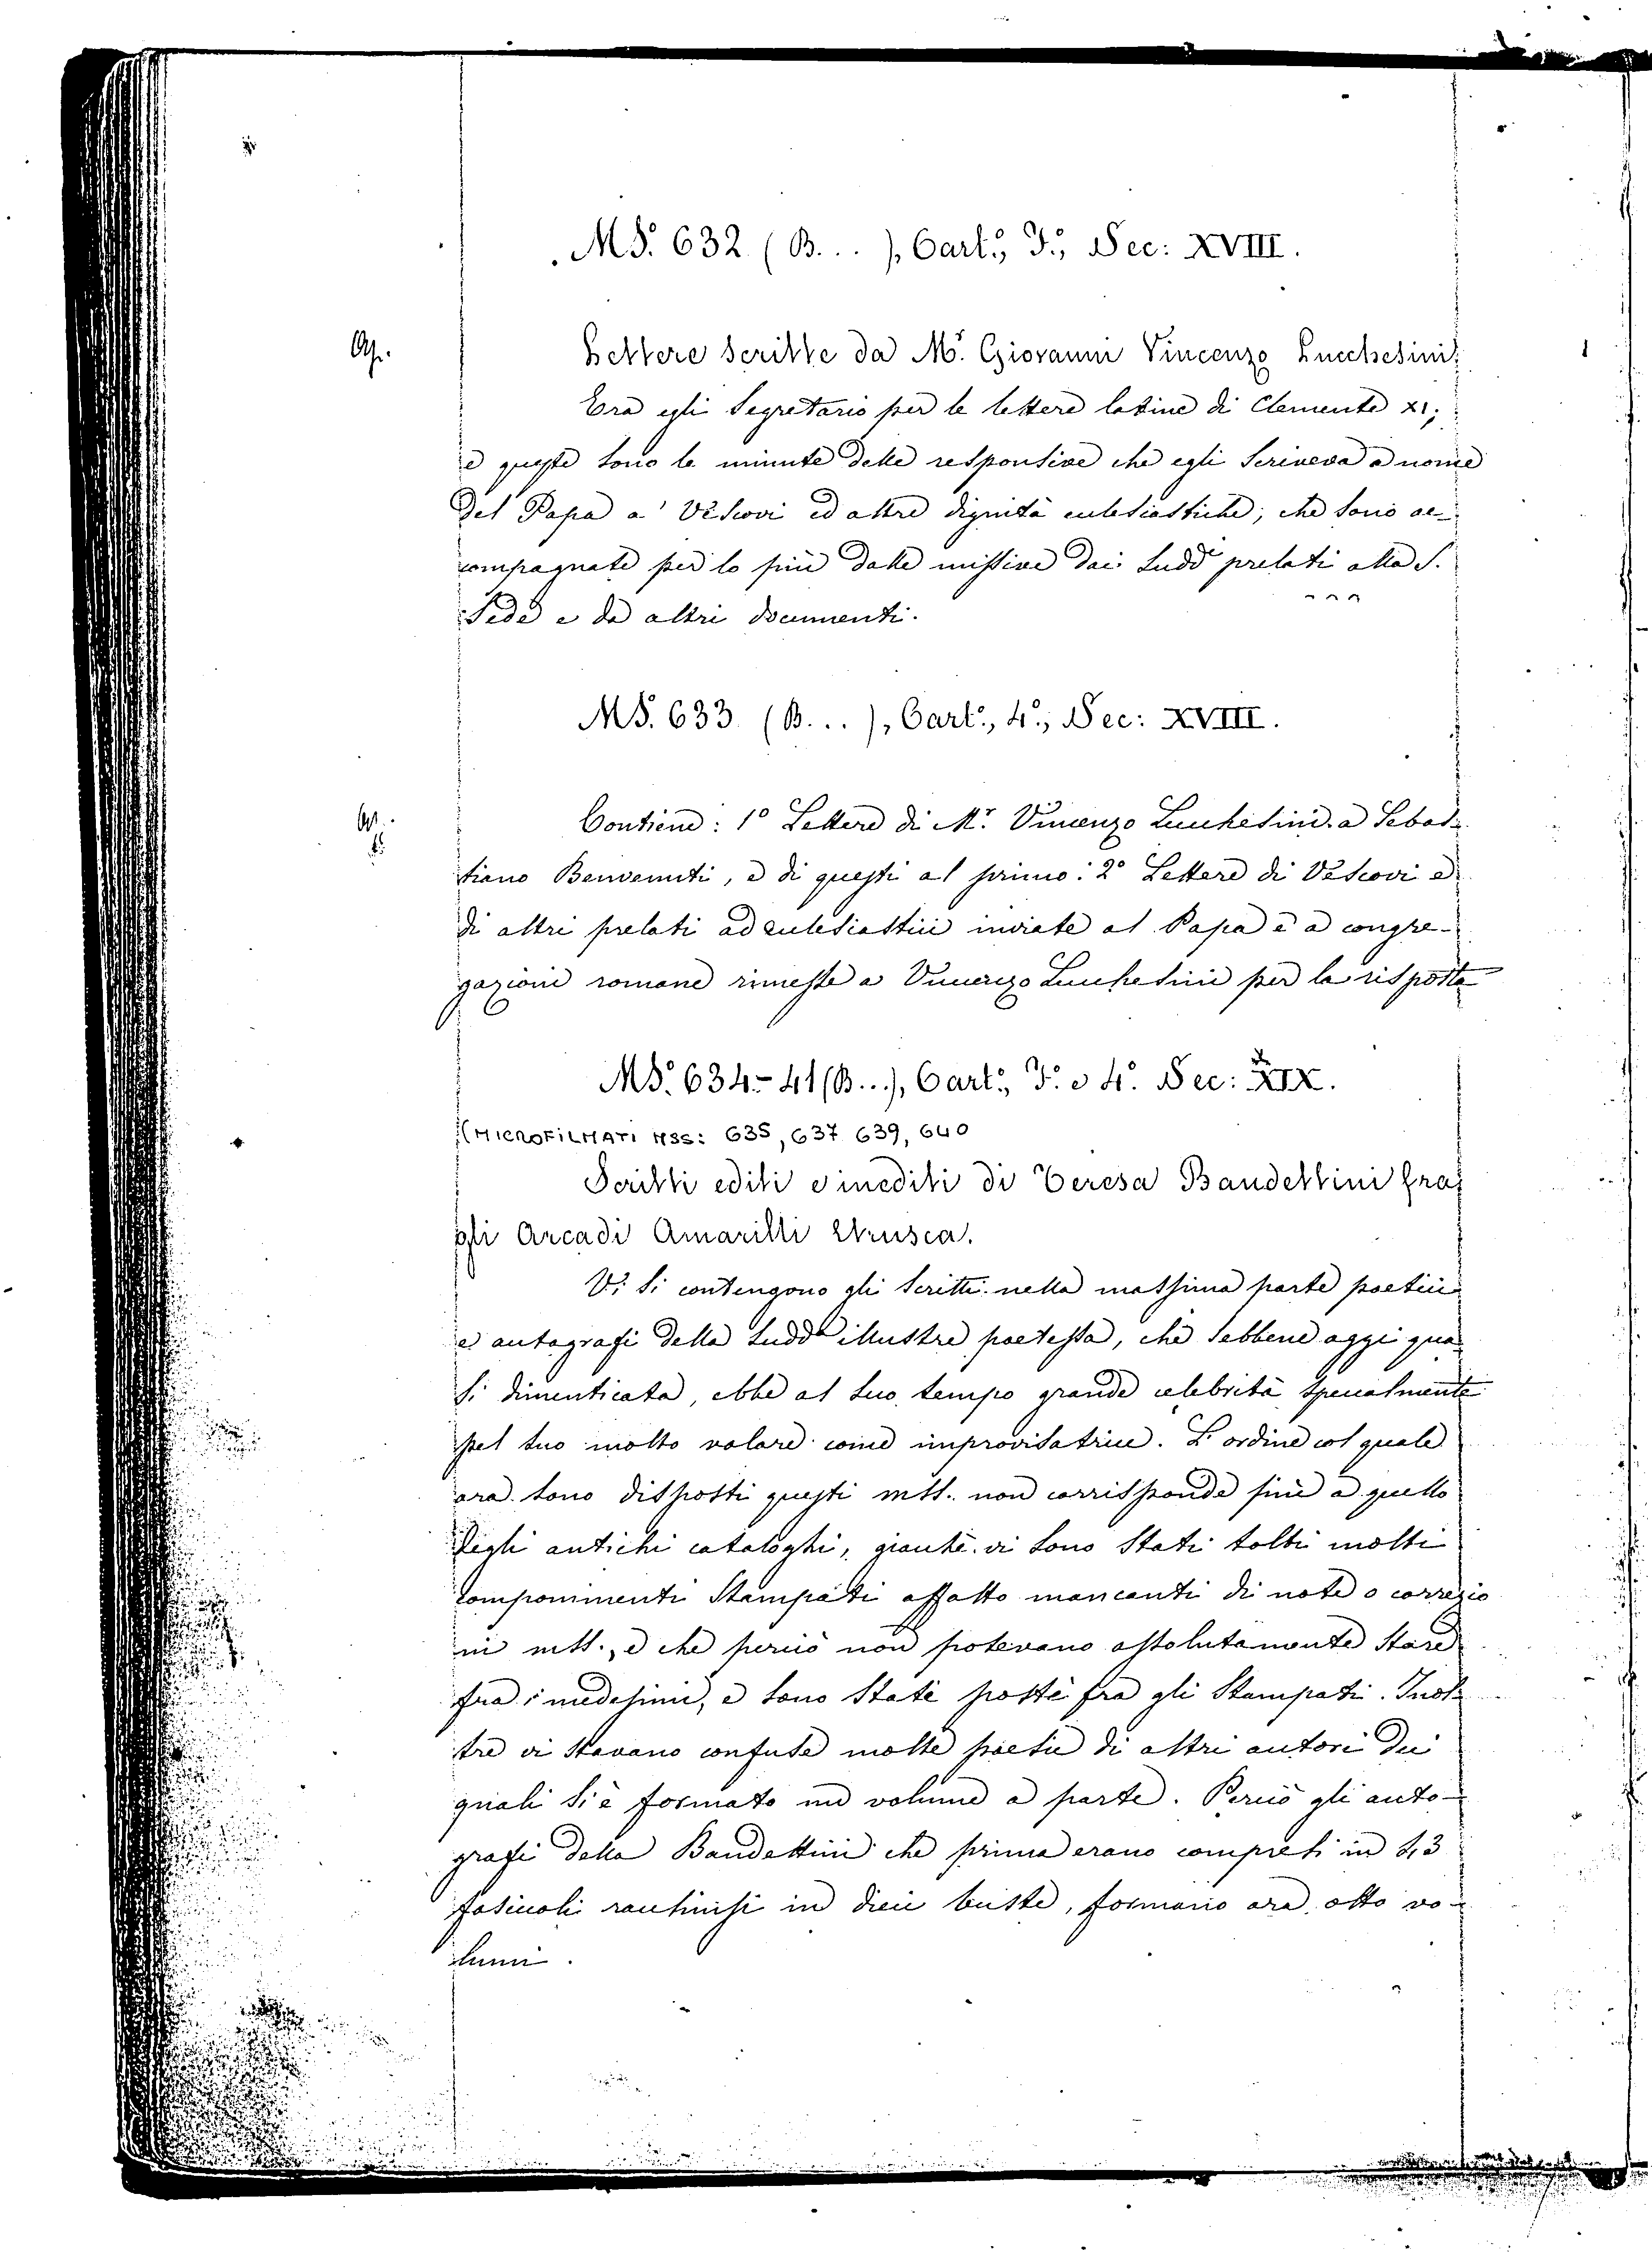 MS. 632 (B...), Cart., F., Sec: XVIII.
Lettere scritte da Mr. Giovanni Vincenzo Lucchesini.
Era egli Segretario per le lettere latine di Clemente XI;
e queste sono le minute delle responsive che egli scriveva a nome
del Papa a' Vescovi ed altre dignità ecclesiastiche; che sono ac-
compagnate per lo più dalle missive dai sudd.i prelati alla S.
Sede e da altri documenti.
MS. 633 (B...), Cart., 4.°, Sec: XVIII.
Contiene: 1° Lettere di Mr. Vincenzo Lucchesini a Sebas-
tiano Benvenuti, e di questi al primo: 2° Lettere di Vescovi e
di altri prelati ad ecclesiastici inviate al Papa e a congre-
gazioni romane rimesse a Vincenzo Lucchesini per la risposta
MS. 634-41 (B...), Cart., F. e 4.° Sec: XIX.
(MICROFILMATI MSS: 635, 637 639, 640
Scritti editi e inediti di Teresa Bandettini fra
gli Arcadi Amarilli Etrusca.
Vi si contengono gli scritti nella massima parte poetici
e autografi della sudd.a illustre poetessa, che sebbene oggi qua-
si dimenticata, ebbe al suo tempo grande celebrità specialmente
pel suo molto valore come improvisatrice. L'ordine col quale
ora sono disposti questi mss. non corrisponde più a quello
degli antichi cataloghi, giacchè vi sono stati tolti molti
componimenti stampati affatto mancanti di note o correzio
ni mss., e che perciò non potevano assolutamente stare
fra i medesimi, e sono state poste fra gli stampati. Inol-
tre vi stavano confuse molte poesie di altri autori dei
quali si è formato un volume a parte. Perciò gli auto-
grafi della Bandettini che prima erano compresi in 43
fascicoli racchiusi in dieci buste, formano ora otto vo-
lumi.